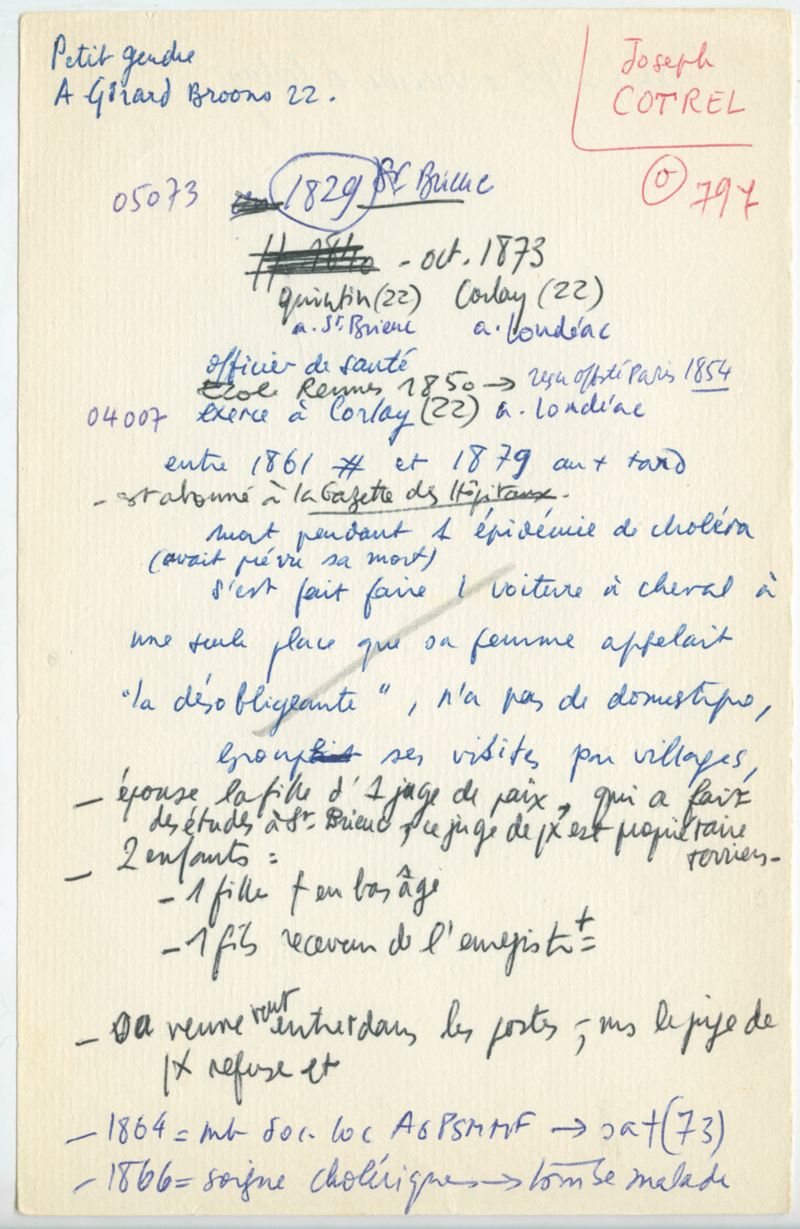 Petit gendre
A Girard Broons 22.
Joseph
COTREL
797
05073
1829 St Brieuc
- oct. 1873
quintin (22) Corlay (22)
a. St Brieuc a. Loudéac
officier de santé
Ecole Rennes 1850 → reçu Paris 1854
04007 exerce à Corlay (22) a. Loudéac
entre 1861 # et 1879 au + tard
- est abonné à la Gazette des Hôpitaux.
mort pendant 1 épidémie de choléra
(avait prévu sa mort)
s'est fait faire 1 voiture à cheval à
une seule place que sa femme appelait
"la désobligeante", n'a pas de domestique,
group ses visites par villages,
- épouse la fille d'1 juge de paix, qui a fait
des études à St Brieuc, ce juge de px est propriétaire
terrien -
- 2 enfants :
- 1 fille † en bas âge
- 1 fils receveur de l'enregist+
- sa veuve veut entrer dans les postes, ms le juge de
px refuse et
- 1864 = mb soc. loc AGPSMMF → sa † (73)
- 1866 = soigne cholériques → tombe malade